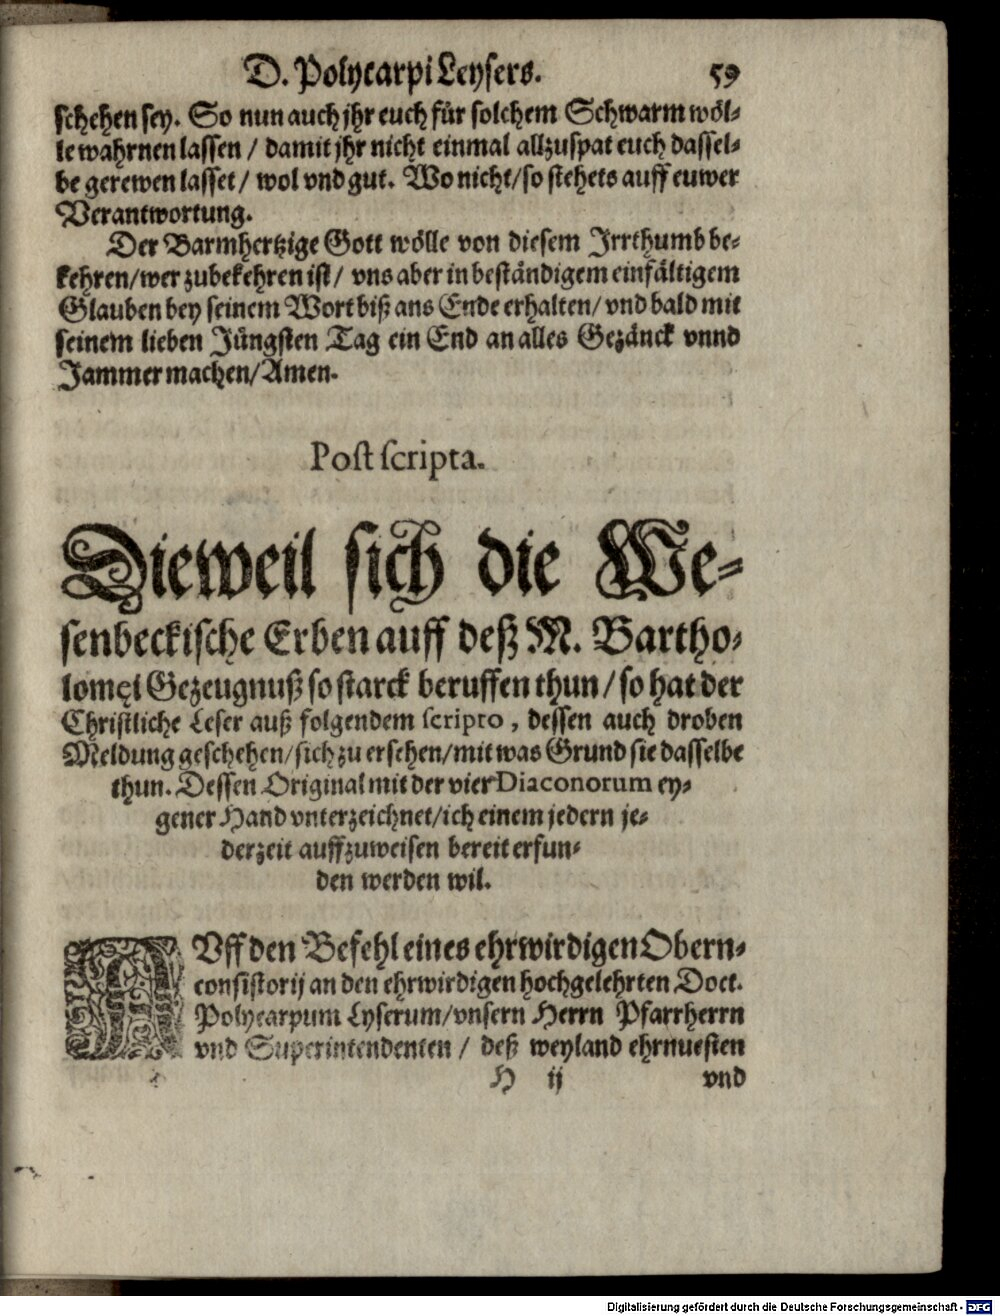 D. Polycarpi Leysers. 59
schehen sey. So nun auch jhr euch für solchem Schwarm wöl-
le wahrnen lassen / damit jhr nicht einmal allzuspat euch dassel-
be gerewen lasset / wol vnd gut. Wo nicht / so stehets auff euwer
Verantwortung.
Der Barmhertzige Gott wölle von diesem Jrrthumb be-
kehren / wer zubekehren ist / vns aber in beständigem einfältigem
Glauben bey seinem Wort biß ans Ende erhalten / vnd bald mit
seinem lieben Jüngsten Tag ein End an alles Gezänck vnnd
Jammer machen / Amen.
Post scripta.
Dieweil sich die We-
senbeckische Erben auff deß M. Bartho-
lomęi Gezeugnuß so starck beruffen thun / so hat der
Christliche Leser auß folgendem scripto, dessen auch droben
Meldung geschehen / sich zu ersehen / mit was Grund sie dasselbe
thun. Dessen Original mit der vier Diaconorum ey-
gener Hand vnterzeichnet / ich einem jedern je-
derzeit auffzuweisen bereit erfun-
den werden wil.
AVff den Befehl eines ehrwirdigen Obern-
consistorij an den ehrwirdigen hochgelehrten Doct.
Polycarpum Lyserum / vnsern Herrn Pfarrherrn
vnd Superintendenten / deß weyland ehrnuesten
H ij vnd
Digitalisierung gefördert durch die Deutsche Forschungsgemeinschaft - DFG